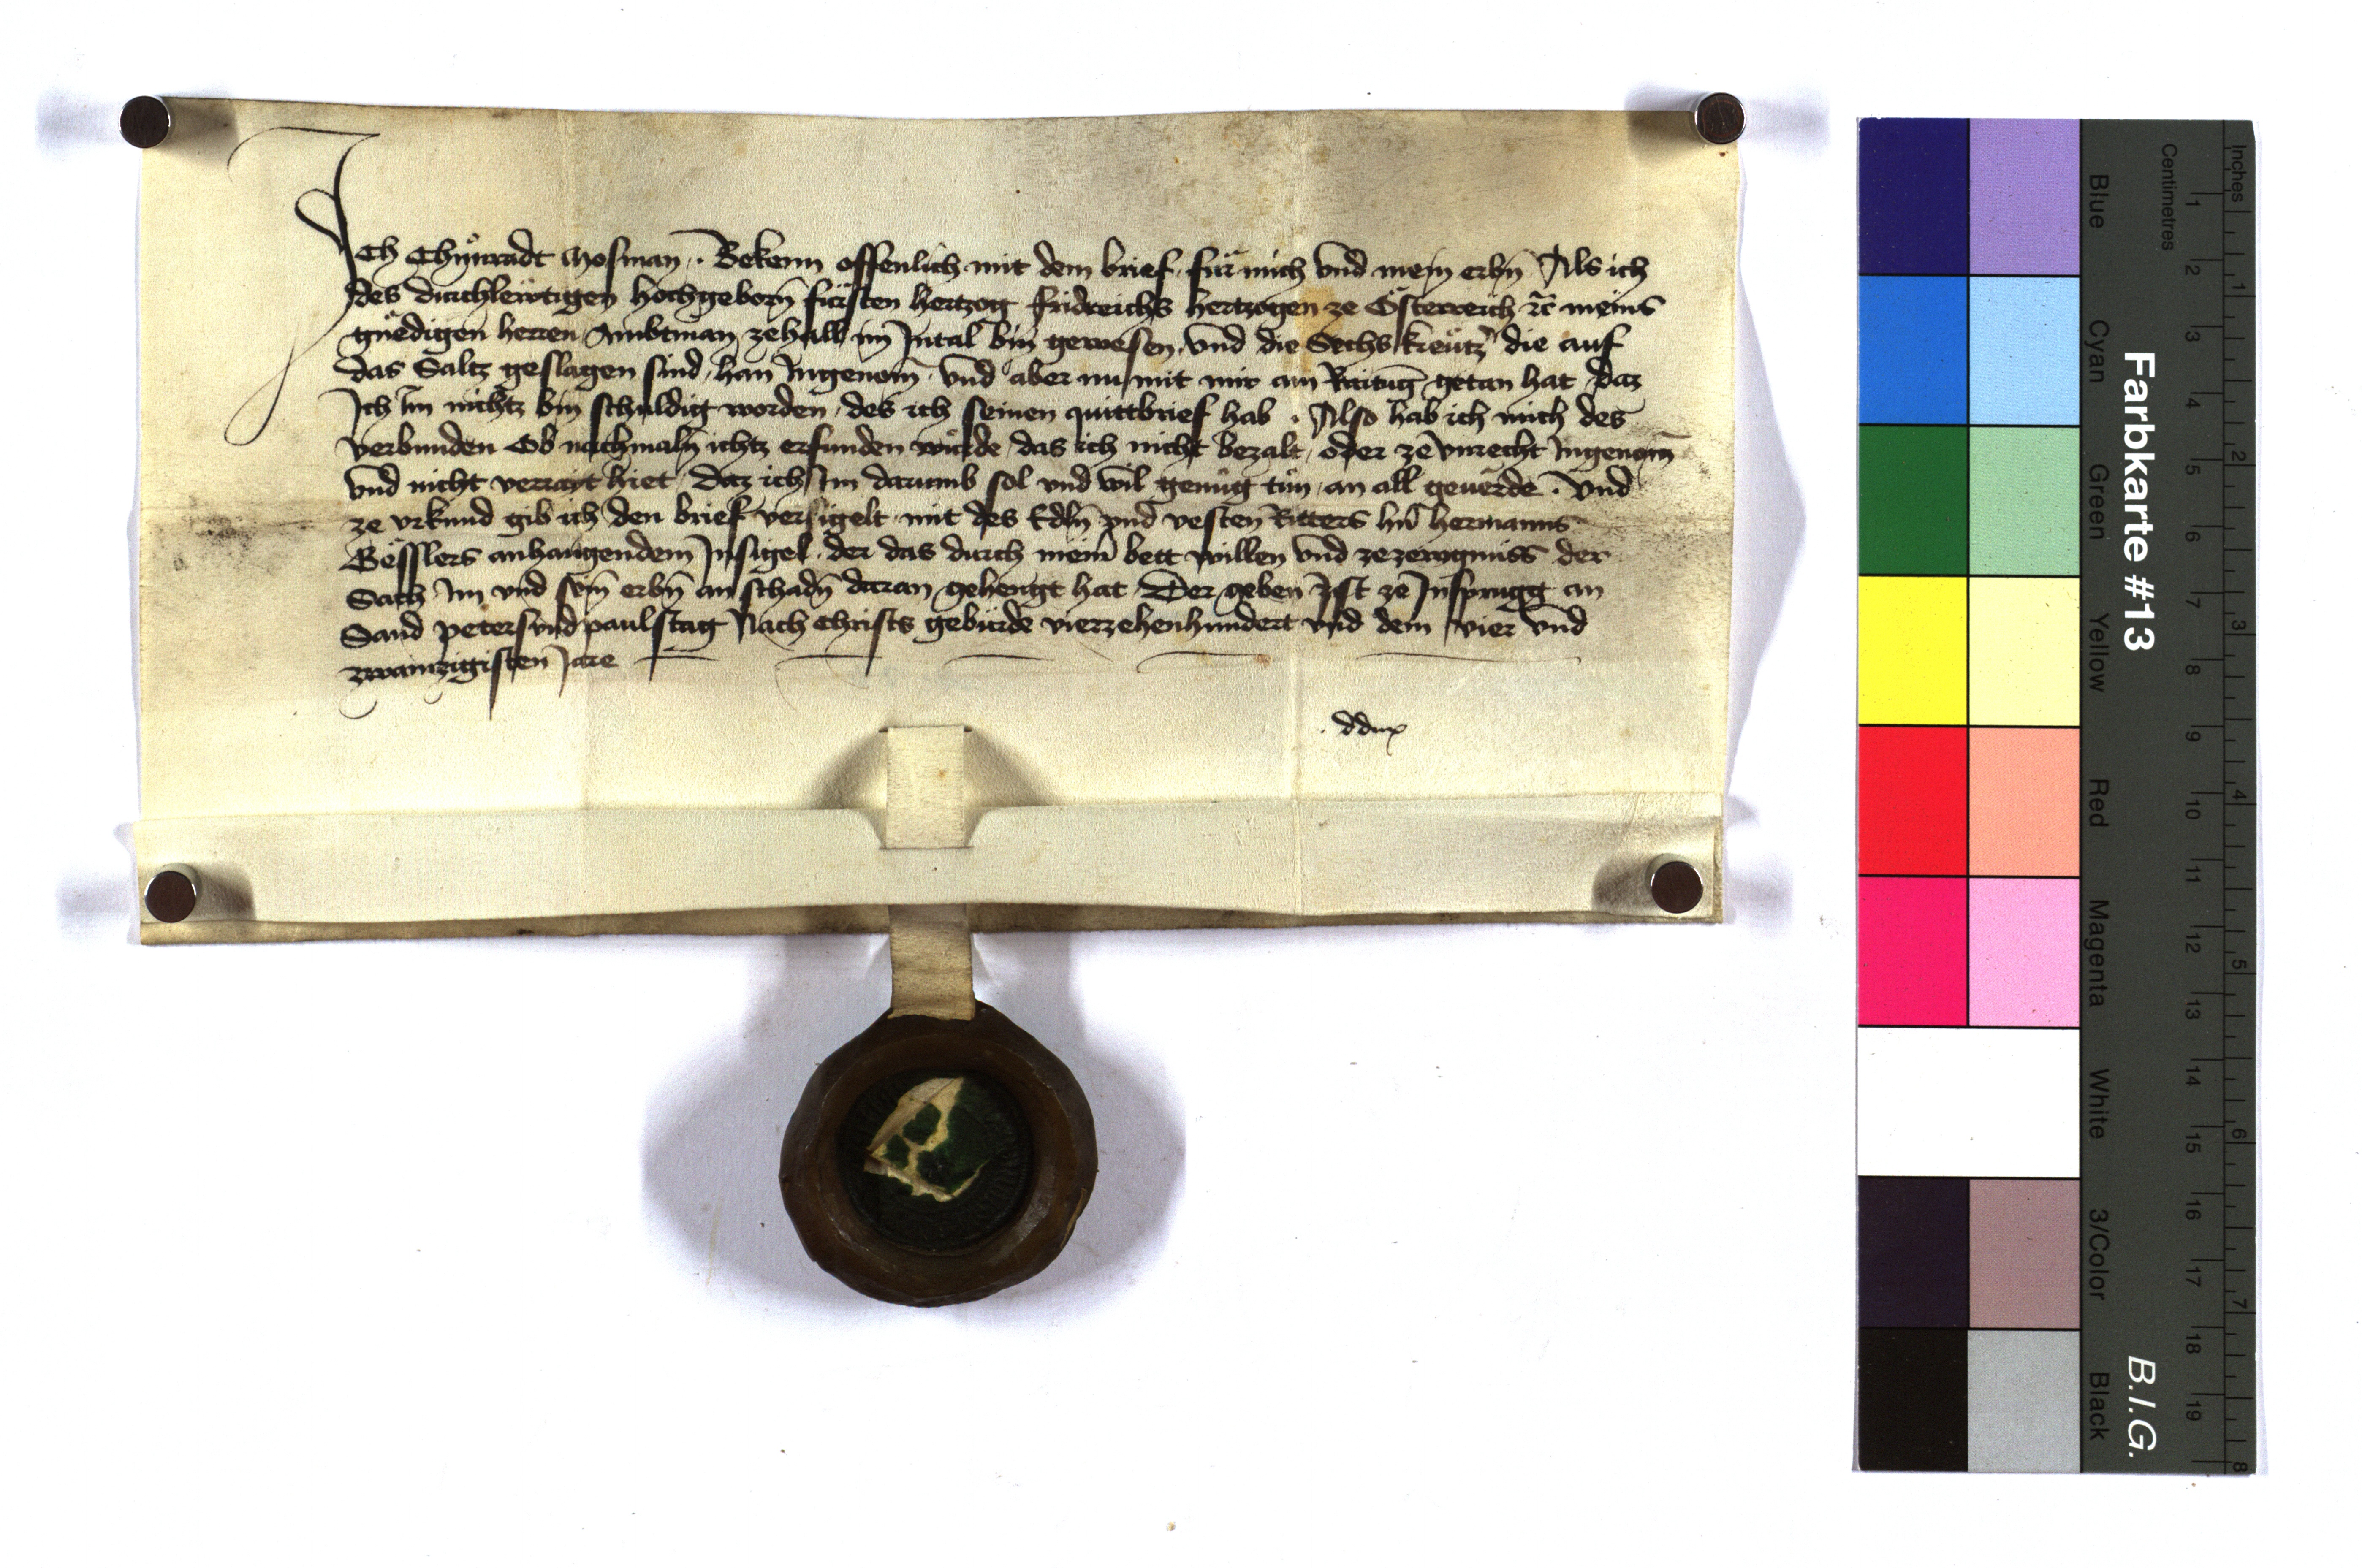 Ich Chůnradt Mosman. Bekenn offenlich mit dem brief. für mich vnd mein erbn̄ Als ich
des durchlewtigen hochgeborn̄ fürsten hertzog fridreichs hertzogen ze Österreich zc̄ meins
gnëdigen herren Ambtman zehall im Intal bin gewesen. vnd die Sechs kreütz̄ die auf
das Saltz geslagen sind, han Ingenom̄. vnd aber nu mit mir ain Raituḡ getan hat daz
Ich im nichtz bin schuldig worden, des ich seinen quittbrief hab. Also hab ich mich des
verbunden Ob nachmaln̄ ichtz erfunden würde das ich nicht bezalt, oder ze vnrecht Ingenom̄
vnd nicht verrayt hiet Daz ich Im darumb sol vnd wil genüg tůn, an all geuërde. Vnd
ze vrkund gib ich den brief versigelt mit des Edln̄ vnd vesten Ritters hn̄ hermanns
Gësslers anhangendem Insigel. der das durch meīn bett willen vnd zezewgnüss der
Sach Im vnd sein̄ erbn̄ an schadn̄ daran gehengt hat Der geben ist ze Insprugg an
Sand peters vnd pauls tag Nach Christs gebürde vierzehenhundert vnd dem vier vnd
zwaintzigisten Jare
Farbkarte #13
B.I.G.
Centimetres
Inches
Blue
Cyan
Green
Yellow
Red
Magenta
White
3/Color
Black
1 2 3 4 5 6 7 8 9 10 11 12 13 14 15 16 17 18 19
1 2 3 4 5 6 7 8